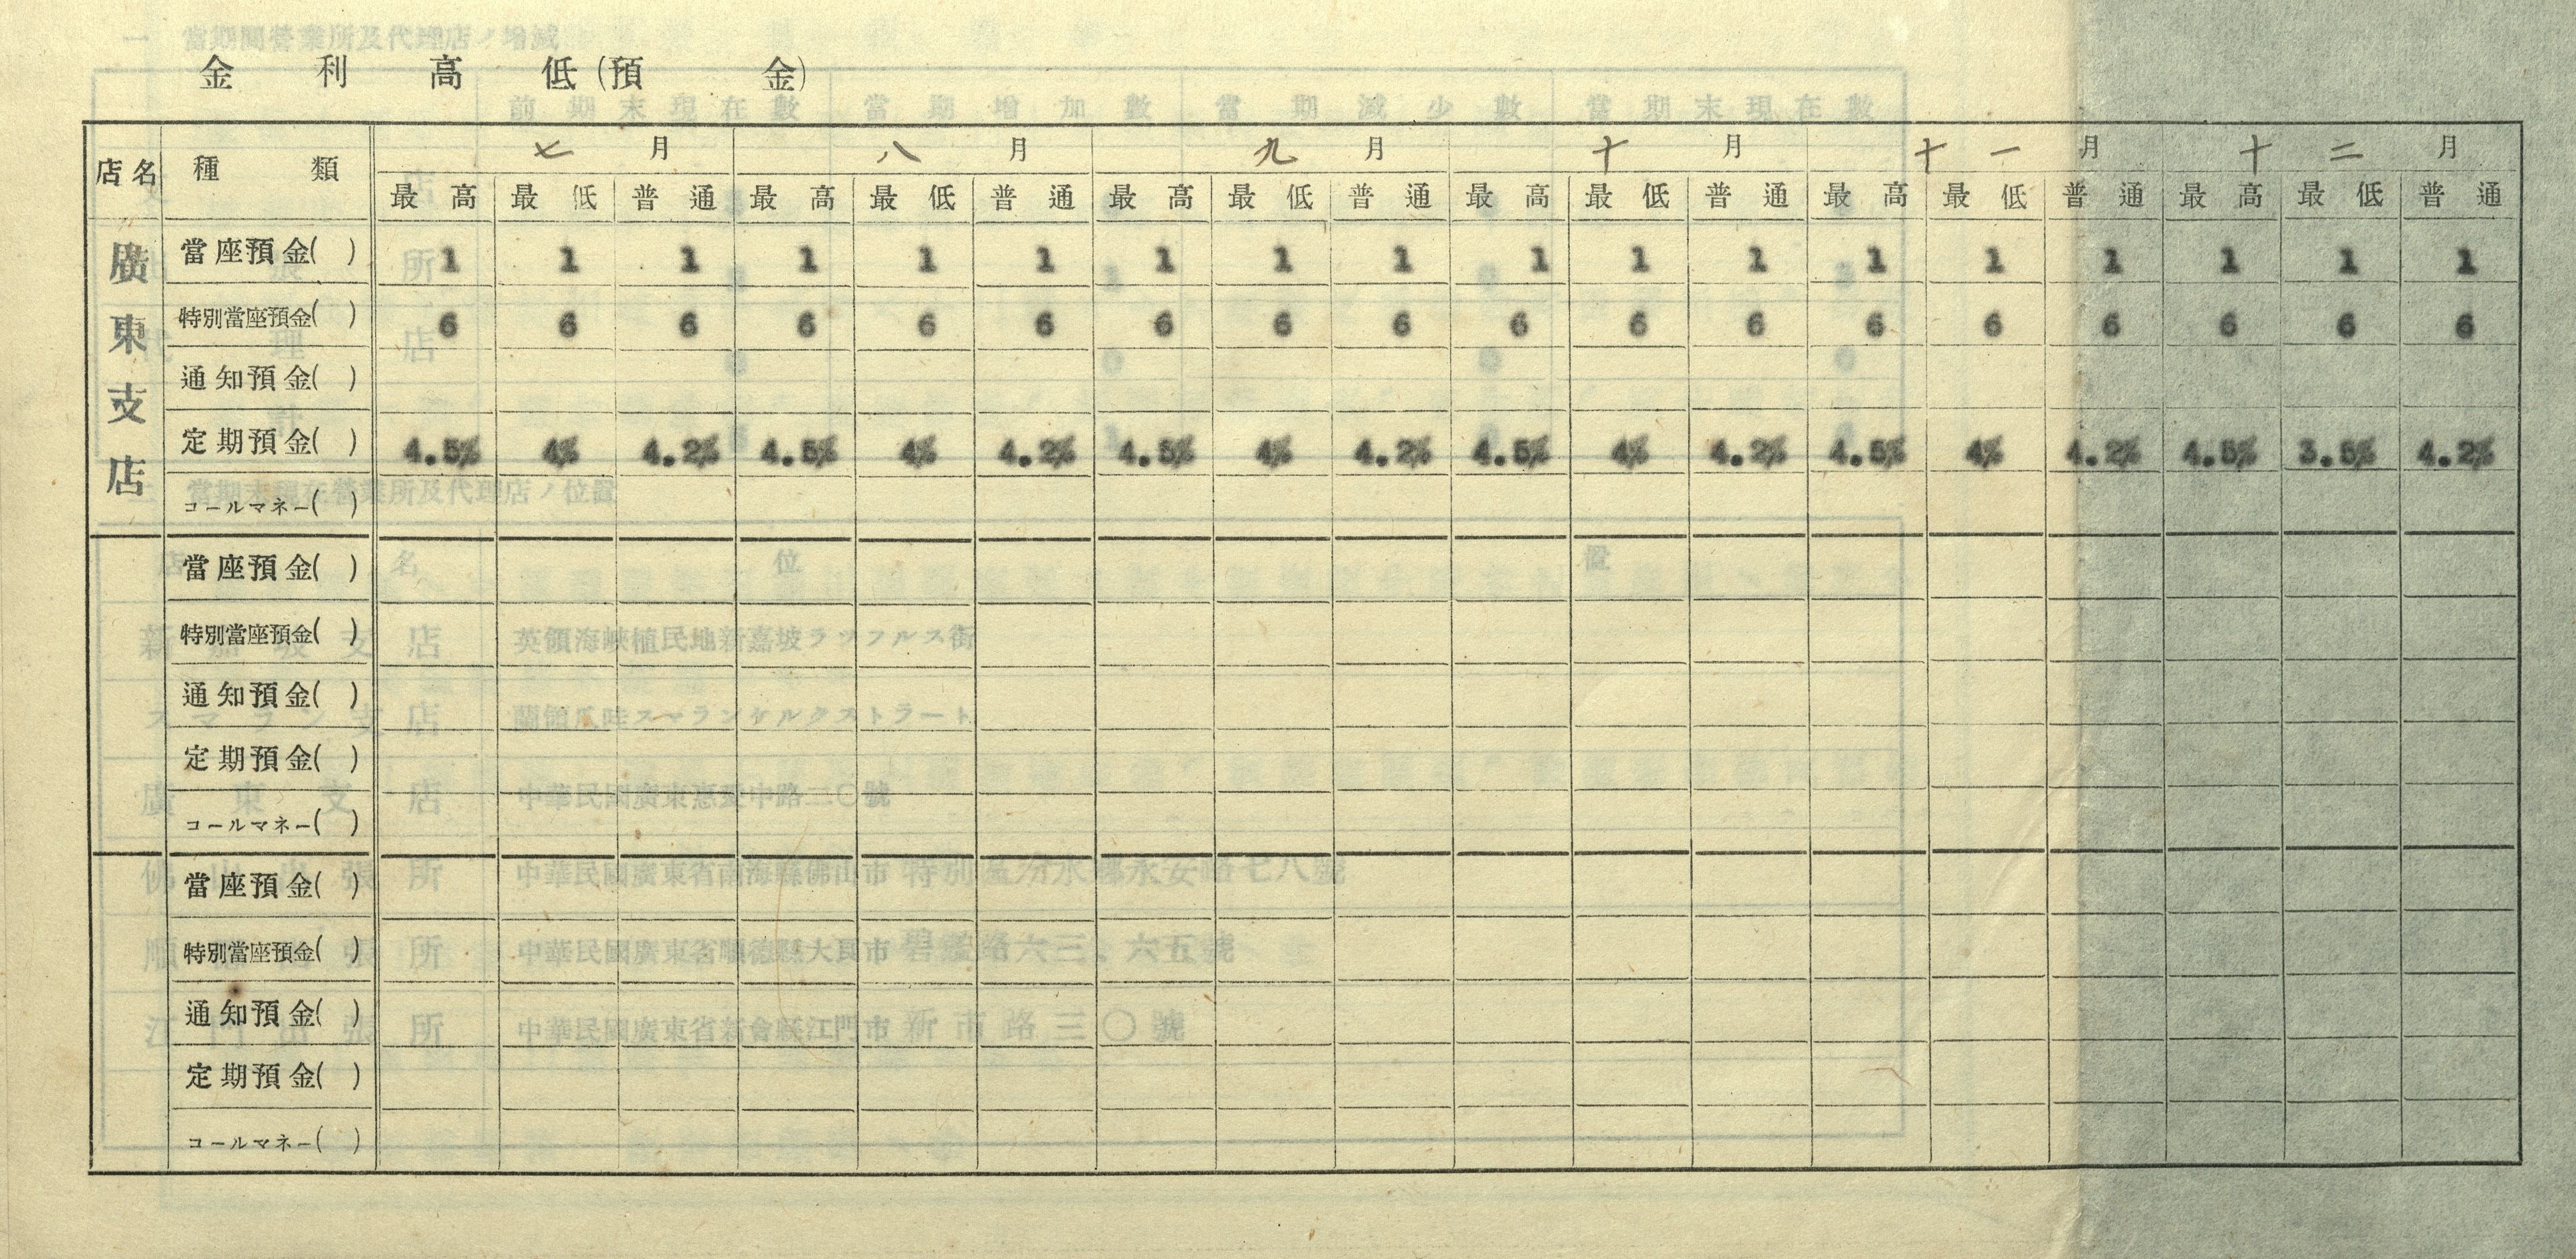 金利高低(預金)
店名 種類 七月 八月 九月 十月 十一月 十二月
最高 最低 普通 最高 最低 普通 最高 最低 普通 最高 最低 普通 最高 最低 普通 最高 最低 普通
廣東支店
當座預金( ) 1 1 1 1 1 1 1 1 1 1 1 1 1 1 1 1 1 1
特別當座預金( ) 6 6 6 6 6 6 6 6 6 6 6 6 6 6 6 6 6 6
通知預金( )
定期預金( ) 4.5% 4% 4.2% 4.5% 4% 4.2% 4.5% 4% 4.2% 4.5% 4% 4.2% 4.5% 4% 4.2% 4.5% 3.5% 4.2%
コールマネー( )
當座預金( )
特別當座預金( )
通知預金( )
定期預金( )
コールマネー( )
當座預金( )
特別當座預金( )
通知預金( )
定期預金( )
コールマネー( )